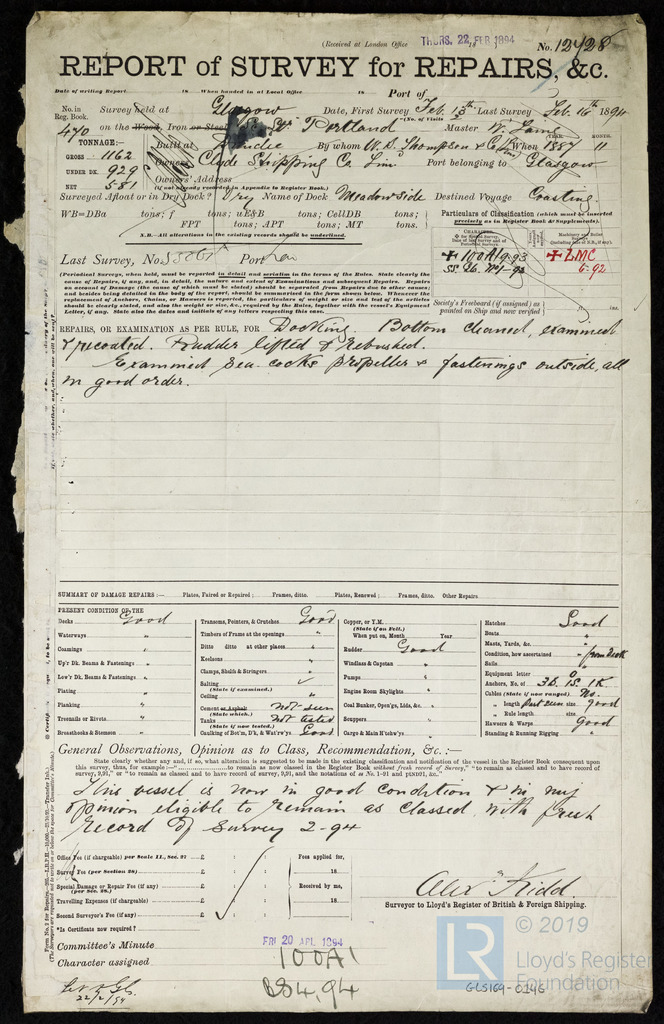 (Received at London Office THURS. 22, FEB 1894 18 ) No. 12428
REPORT of SURVEY for REPAIRS, &c.
Date of writing Report 18 When handed in at Local Office 18 Port of
No. in Reg. Book. Survey held at Glasgow Date, First Survey Feb 13th Last Survey Feb. 16th 1894
(No. of Visits 2)
470 on the Wood, Iron or Steel Portland Master W. Laing
TONNAGE:— Built at Dundee By whom W. B. Thompson & Co. Lim When 1887 YEAR. MONTH. 11
GROSS 1162 Owners Clyde Shipping Co Limd Port belonging to Glasgow
UNDER DK. 929 Owners' Address
NET 581 (if not already recorded in Appendix to Register Book.)
Surveyed Afloat or in Dry Dock? Dry Name of Dock Meadowside Destined Voyage Coasting
WB=DBa tons; f tons; uE&B tons; CellDB tons;
FPT tons; APT tons; MT tons.
N.B.—All alterations in the existing records should be underlined.
Particulars of Classification (which must be inserted precisely as in Register Book & Supplements).
✠ 100A1 9.93
✠ LMC 6-92
Last Survey, No. Port
(Periodical Surveys, when held, must be reported in detail and seriatim in the terms of the Rules. State clearly the
cause of Repairs, if any, and, in detail, the nature and extent of Examinations and subsequent Repairs. Repairs
on account of Damage (the cause of which must be stated) should be separated from Repairs due to other causes;
and besides being detailed in the body of the report, should be summarised in the form shown below. Whenever the
replacement of Anchors, Chains, or Hawsers is reported, the particulars of weight or size and test of the articles
should be clearly stated, and also the weight or size, &c., required by the Rules, together with the vessel's Equipment
Letter, if any. State also the dates and initials of any letters respecting this case.
Society's Freeboard (if assigned) as painted on Ship and now verified ft. ins.
REPAIRS, OR EXAMINATION AS PER RULE, FOR Docking. Bottom cleaned, examined
& recoated. Rudder lifted & Rebushed.
Examined Sea-cocks propeller & fastenings outside, all
in good order.
SUMMARY OF DAMAGE REPAIRS:— Plates, Faired or Repaired; Frames, ditto. Plates, Renewed; Frames, ditto. Other Repairs
PRESENT CONDITION OF THE
Decks Good
Waterways "
Coamings "
Up'r Dk. Beams & Fastenings "
Low'r Dk. Beams & Fastenings "
Plating "
Planking "
Treenails or Rivets "
Breasthooks & Stemson "
Transoms, Pointers, & Crutches Good
Timbers of Frame at the openings "
Ditto ditto at other places "
Keelsons "
Clamps, Shelfs & Stringers "
Salting ✓
(State if examined.)
Ceiling "
Cement or Asphalt not seen
(State which.)
Tanks not tested
(State if now tested.)
Caulking of Bot'm, D'k, & Wat'rw'ys Good
Copper, or Y.M.
(State if on Felt.)
When put on, Month Year
Rudder Good
Windlass & Capstan "
Pumps "
Engine Room Skylights "
Coal Bunker, Open'gs, Lids, &c. "
Scuppers "
Cargo & Main H'tchw'ys "
Hatches Good
Boats "
Masts, Yards, &c. "
Condition, how ascertained from Deck
Sails "
Equipment letter
Anchors, No. of 3B. 1S. 1K
Cables (State if now ranged) No.
" length Part seen size good
" Rule length size
Hawsers & Warps Good
Standing & Running Rigging "
General Observations, Opinion as to Class, Recommendation, &c.:—
State clearly whether any, and if so, what alteration is suggested to be made in the existing classification and notification of the vessel in the Register Book consequent upon
this survey, thus, for example:— "to remain as now classed in the Register Book without fresh record of Survey," "to remain as classed and to have record of
survey, 9,91," or "to remain as classed and to have record of survey, 9,91, and the notations of ss No. 1–91 and ptND91, &c."
This vessel is now in good condition & in my
opinion eligible to remain as classed with fresh
record of survey 2-94
Office Fee (if chargeable) per Scale 11., Sec. 27 £ : :
Survey Fee (per Section 28) £ : :
Special Damage or Repair Fee (if any) (per Sec. 28.) £ : :
Travelling Expenses (if chargeable) £ : :
Second Surveyor's Fee (if any) £ : :
Fees applied for, 18
Received by me, 18
Alexr Kidd
Surveyor to Lloyd's Register of British & Foreign Shipping.
*Is Certificate now required?
Committee's Minute FRI 20 APL 1894
Character assigned 100A1
BS 4,94
22/2/94
© 2019
LR
Lloyd's Register
Foundation
GLS169-0146